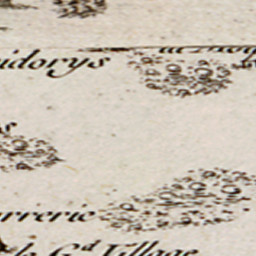 idorys
s
rrerie
le G.d Village